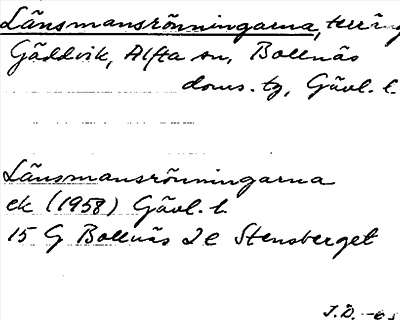 Länsmansrönningarna, terräng
Gäddvik, Alfta sn, Bollnäs
doms. tg, Gävl. l.
Länsmansrönningarna
ek (1958) Gävl. l.
15 G Bollnäs 2e Stensberget
J.Ö. -65